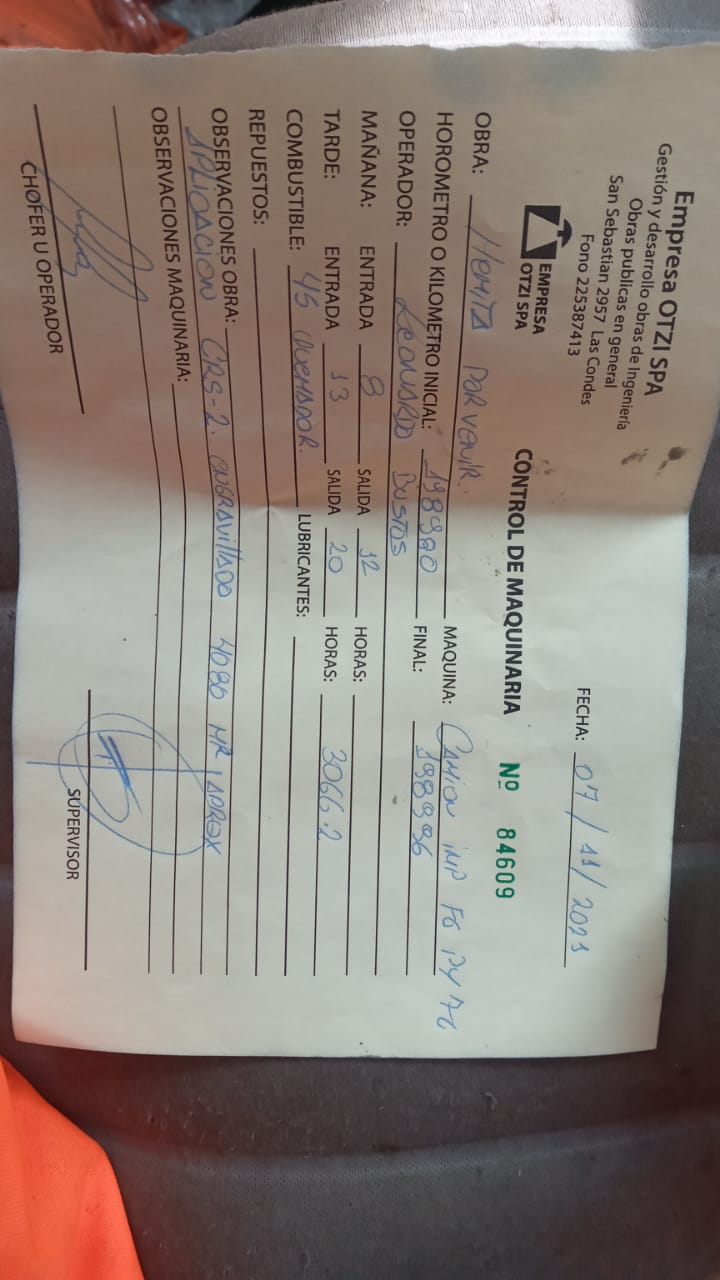 Empresa OTZI SPA
Gestión y desarrollo obras de Ingeniería
Obras publicas en general
San Sebastian 2957 Las Condes
Fono 225387413
EMPRESA
OTZI SPA
FECHA: 07/11/2021
CONTROL DE MAQUINARIA Nº 84609
OBRA: HEMITA PORVENIR. MAQUINA: CAMION IMP FG PY 76
HOROMETRO O KILOMETRO INICIAL: 198980 FINAL: 198996
OPERADOR: LEONARDO BUSTOS
MAÑANA: ENTRADA 8 SALIDA 12 HORAS:
TARDE: ENTRADA 13 SALIDA 20 HORAS: 3066.2
COMBUSTIBLE: 45 QUEMADOR. LUBRICANTES:
REPUESTOS:
OBSERVACIONES OBRA:
APLICACION CRS-2. ENGRAVILLADO 4080 M² APROX
OBSERVACIONES MAQUINARIA:
CHOFER U OPERADOR
SUPERVISOR